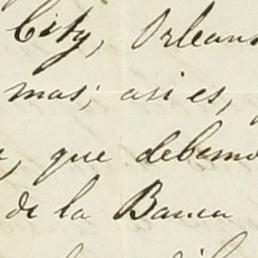 City, Orleans
mas; asi es,
que debemo
de la Banca